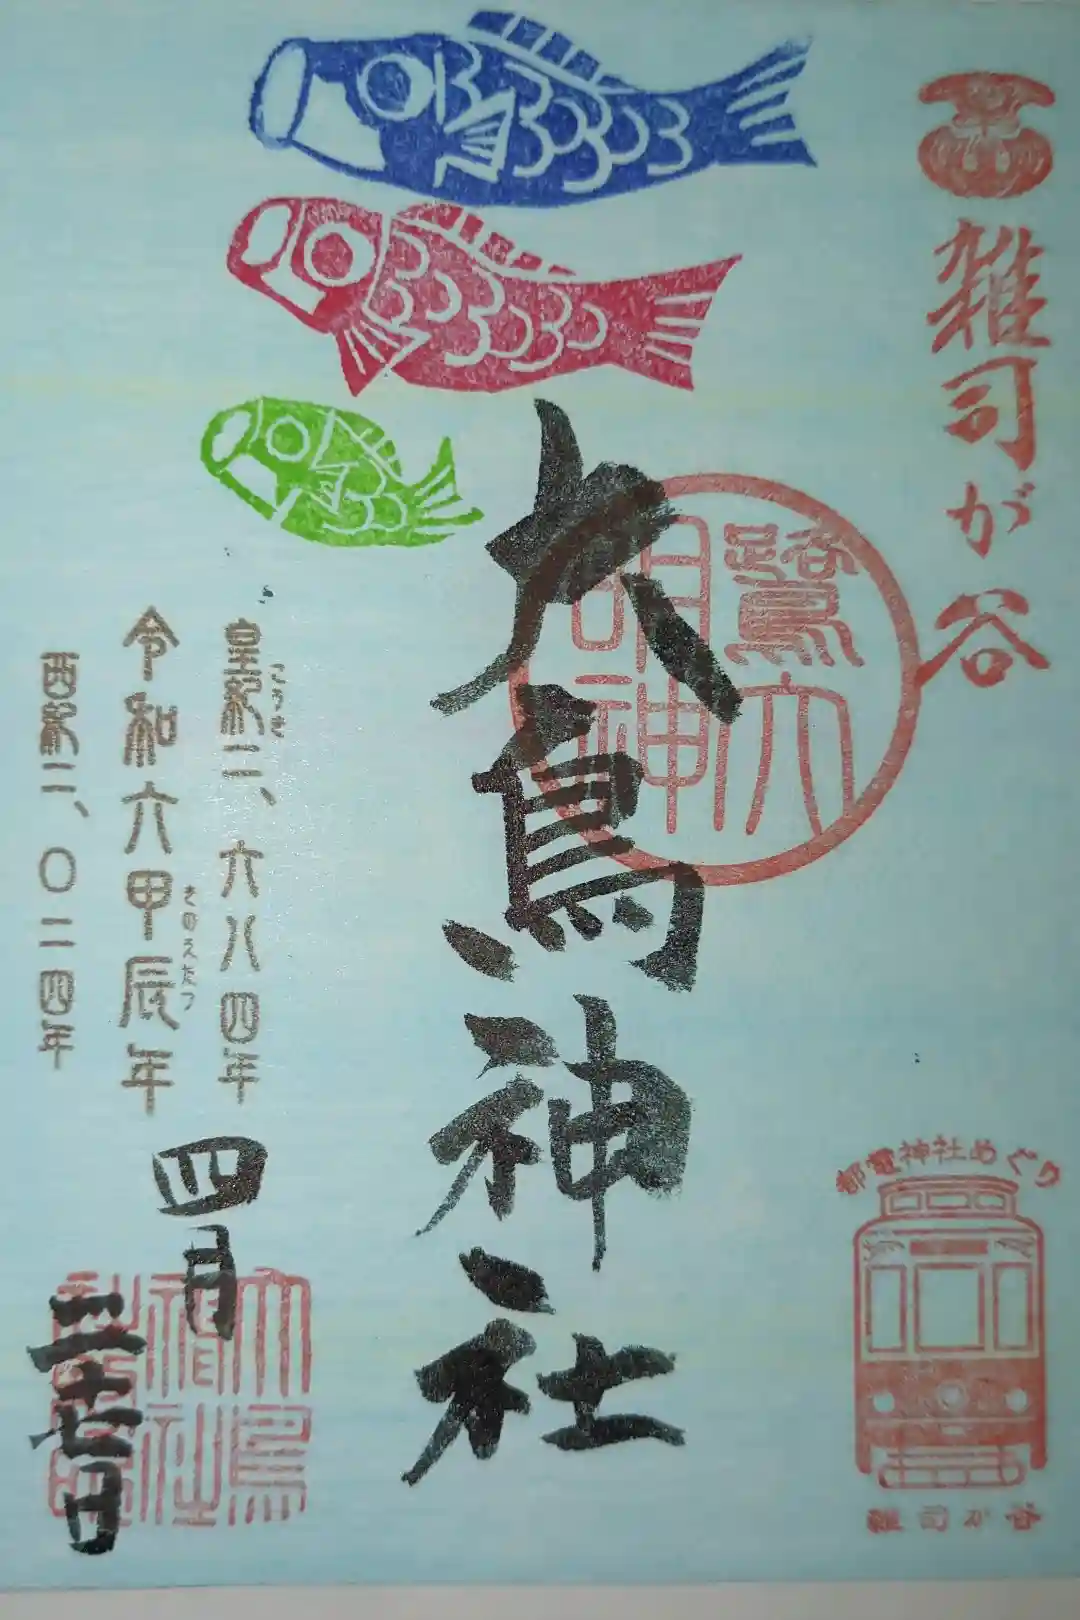 雑司が谷
鷺大
明神
大鳥神社
皇紀二、六八四年
こうき
令和六甲辰年
きのえたつ
西紀二、〇二四年
四月
二十七日
都電神社めぐり
雑司が谷